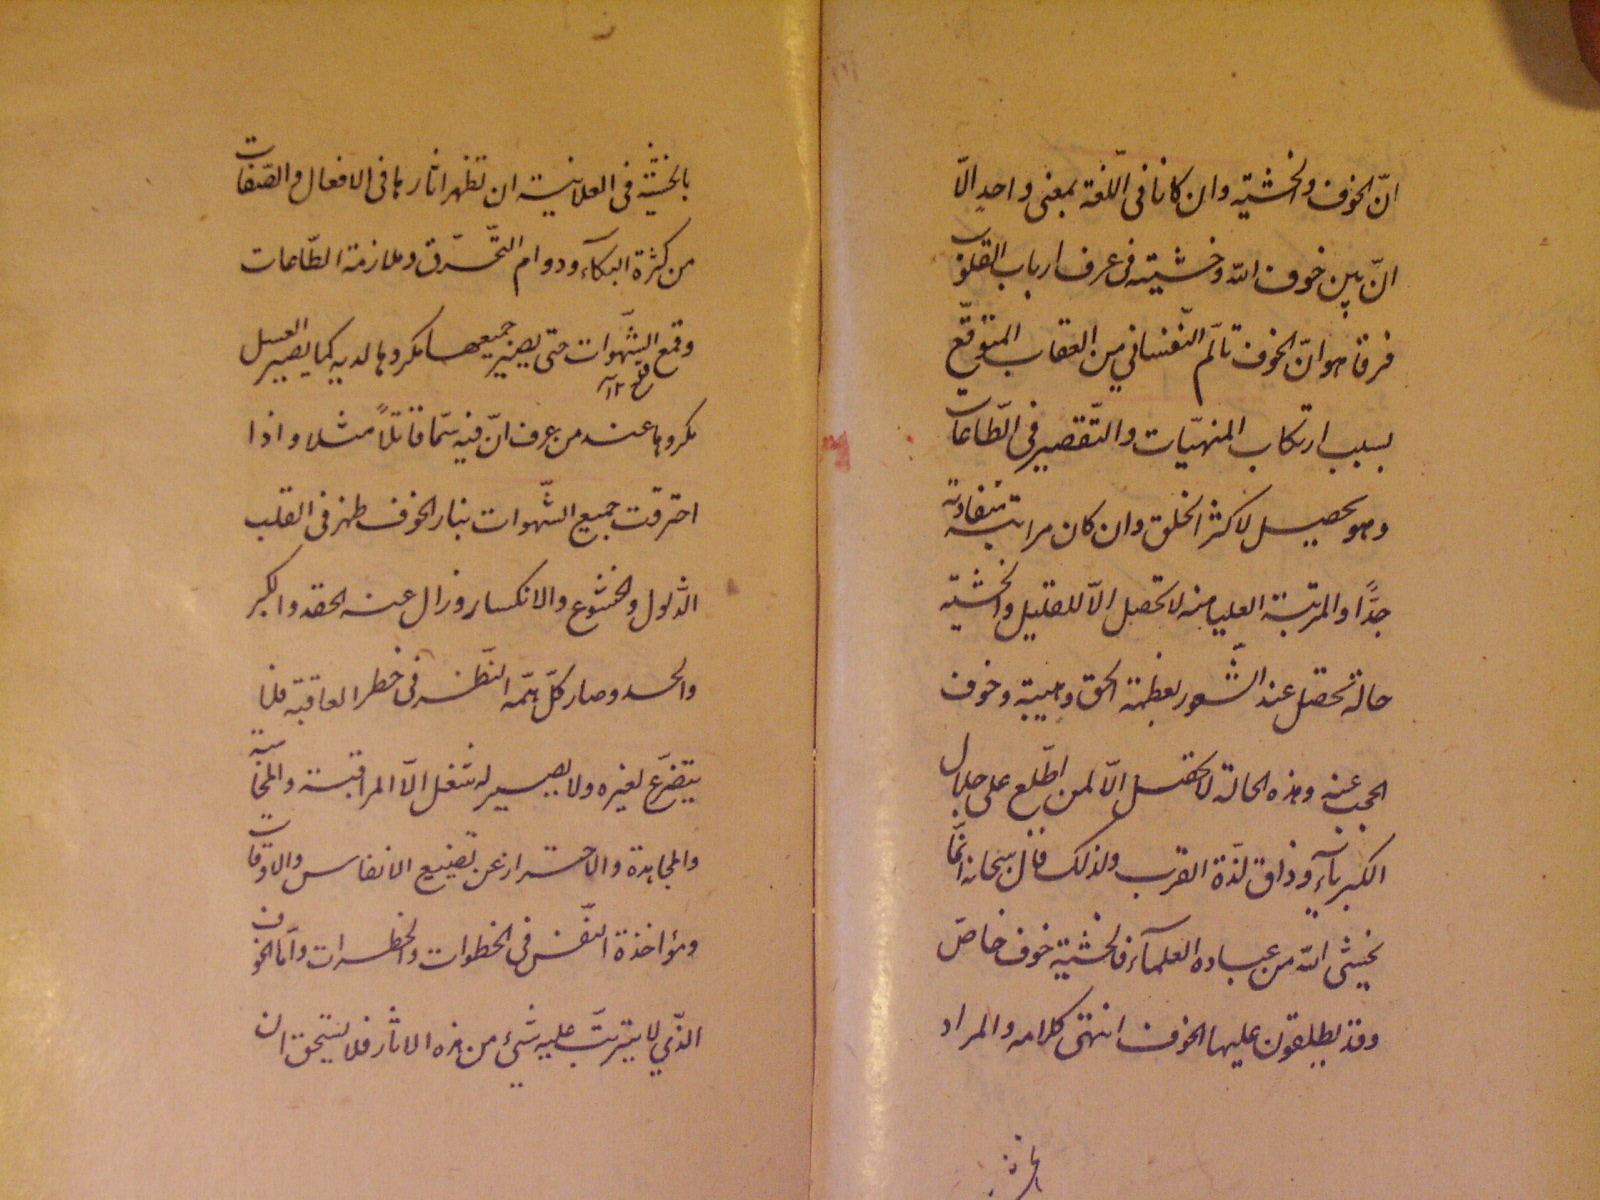 انّ الخوف والخشية وان كانا فى اللّغة بمعنى واحدٍ الّا
انّ بين خوف اللّه وخشيته فى عرف ارباب القلوب
فرقا هو انّ الخوف تالّم النّفسانى من العقاب المتوقّع
بسبب ارتكاب المنهيّات والتّقصير فى الطّاعات
وهو يحصل لاكثر الخلق وان كان مراتبه متفاوتة
جدًّا والمرتبة العليا منه لا تحصل الّا للقليل والخشية
حالة تحصل عند الشّعور بعظمة الحق وهيبته وخوف
الحجب عنه وهذه الحالة لا تحصل الّا لمن اطّلع على جلال
الكبريآء وذاق لذّة القرب ولذلك قال سبحانه انّما
يخشى اللّه من عباده العلمآء فالخشية خوف خاصّ
وقد يطلقون عليها الخوف انتهى كلامه والمراد
بالخشية فى العلانية ان تظهر اثارها فى الافعال والصّفات
من كثرة البكآء ودوام التّحرّق وملازمة الطّاعات
وقمع الشّهوات حتى يصير جميعها مكروها لديه كما يصير العسل
مكروها عند من عرف انّ فيه سمّا قاتلاً مثلا واذا
احترقت جميع الشّهوات بنار الخوف ظهر فى القلب
الذّلول والخشوع والانكسار وزال عنه الحقد والكبر
والحسد وصار كلّ همّه النّظر فى خطر العاقبة فلا
يتضرّع لغيره ولا يصير له شغل الّا المراقبة والمحاسبة
والمجاهدة والاحتراز عن تضييع الانفاس والاوقات
ومؤاخذة النّفس فى الخطوات والخطرات وامّا الخوف
الذّى لا يترتّب عليه شىء من هذه الاثار فلا يستحق ان